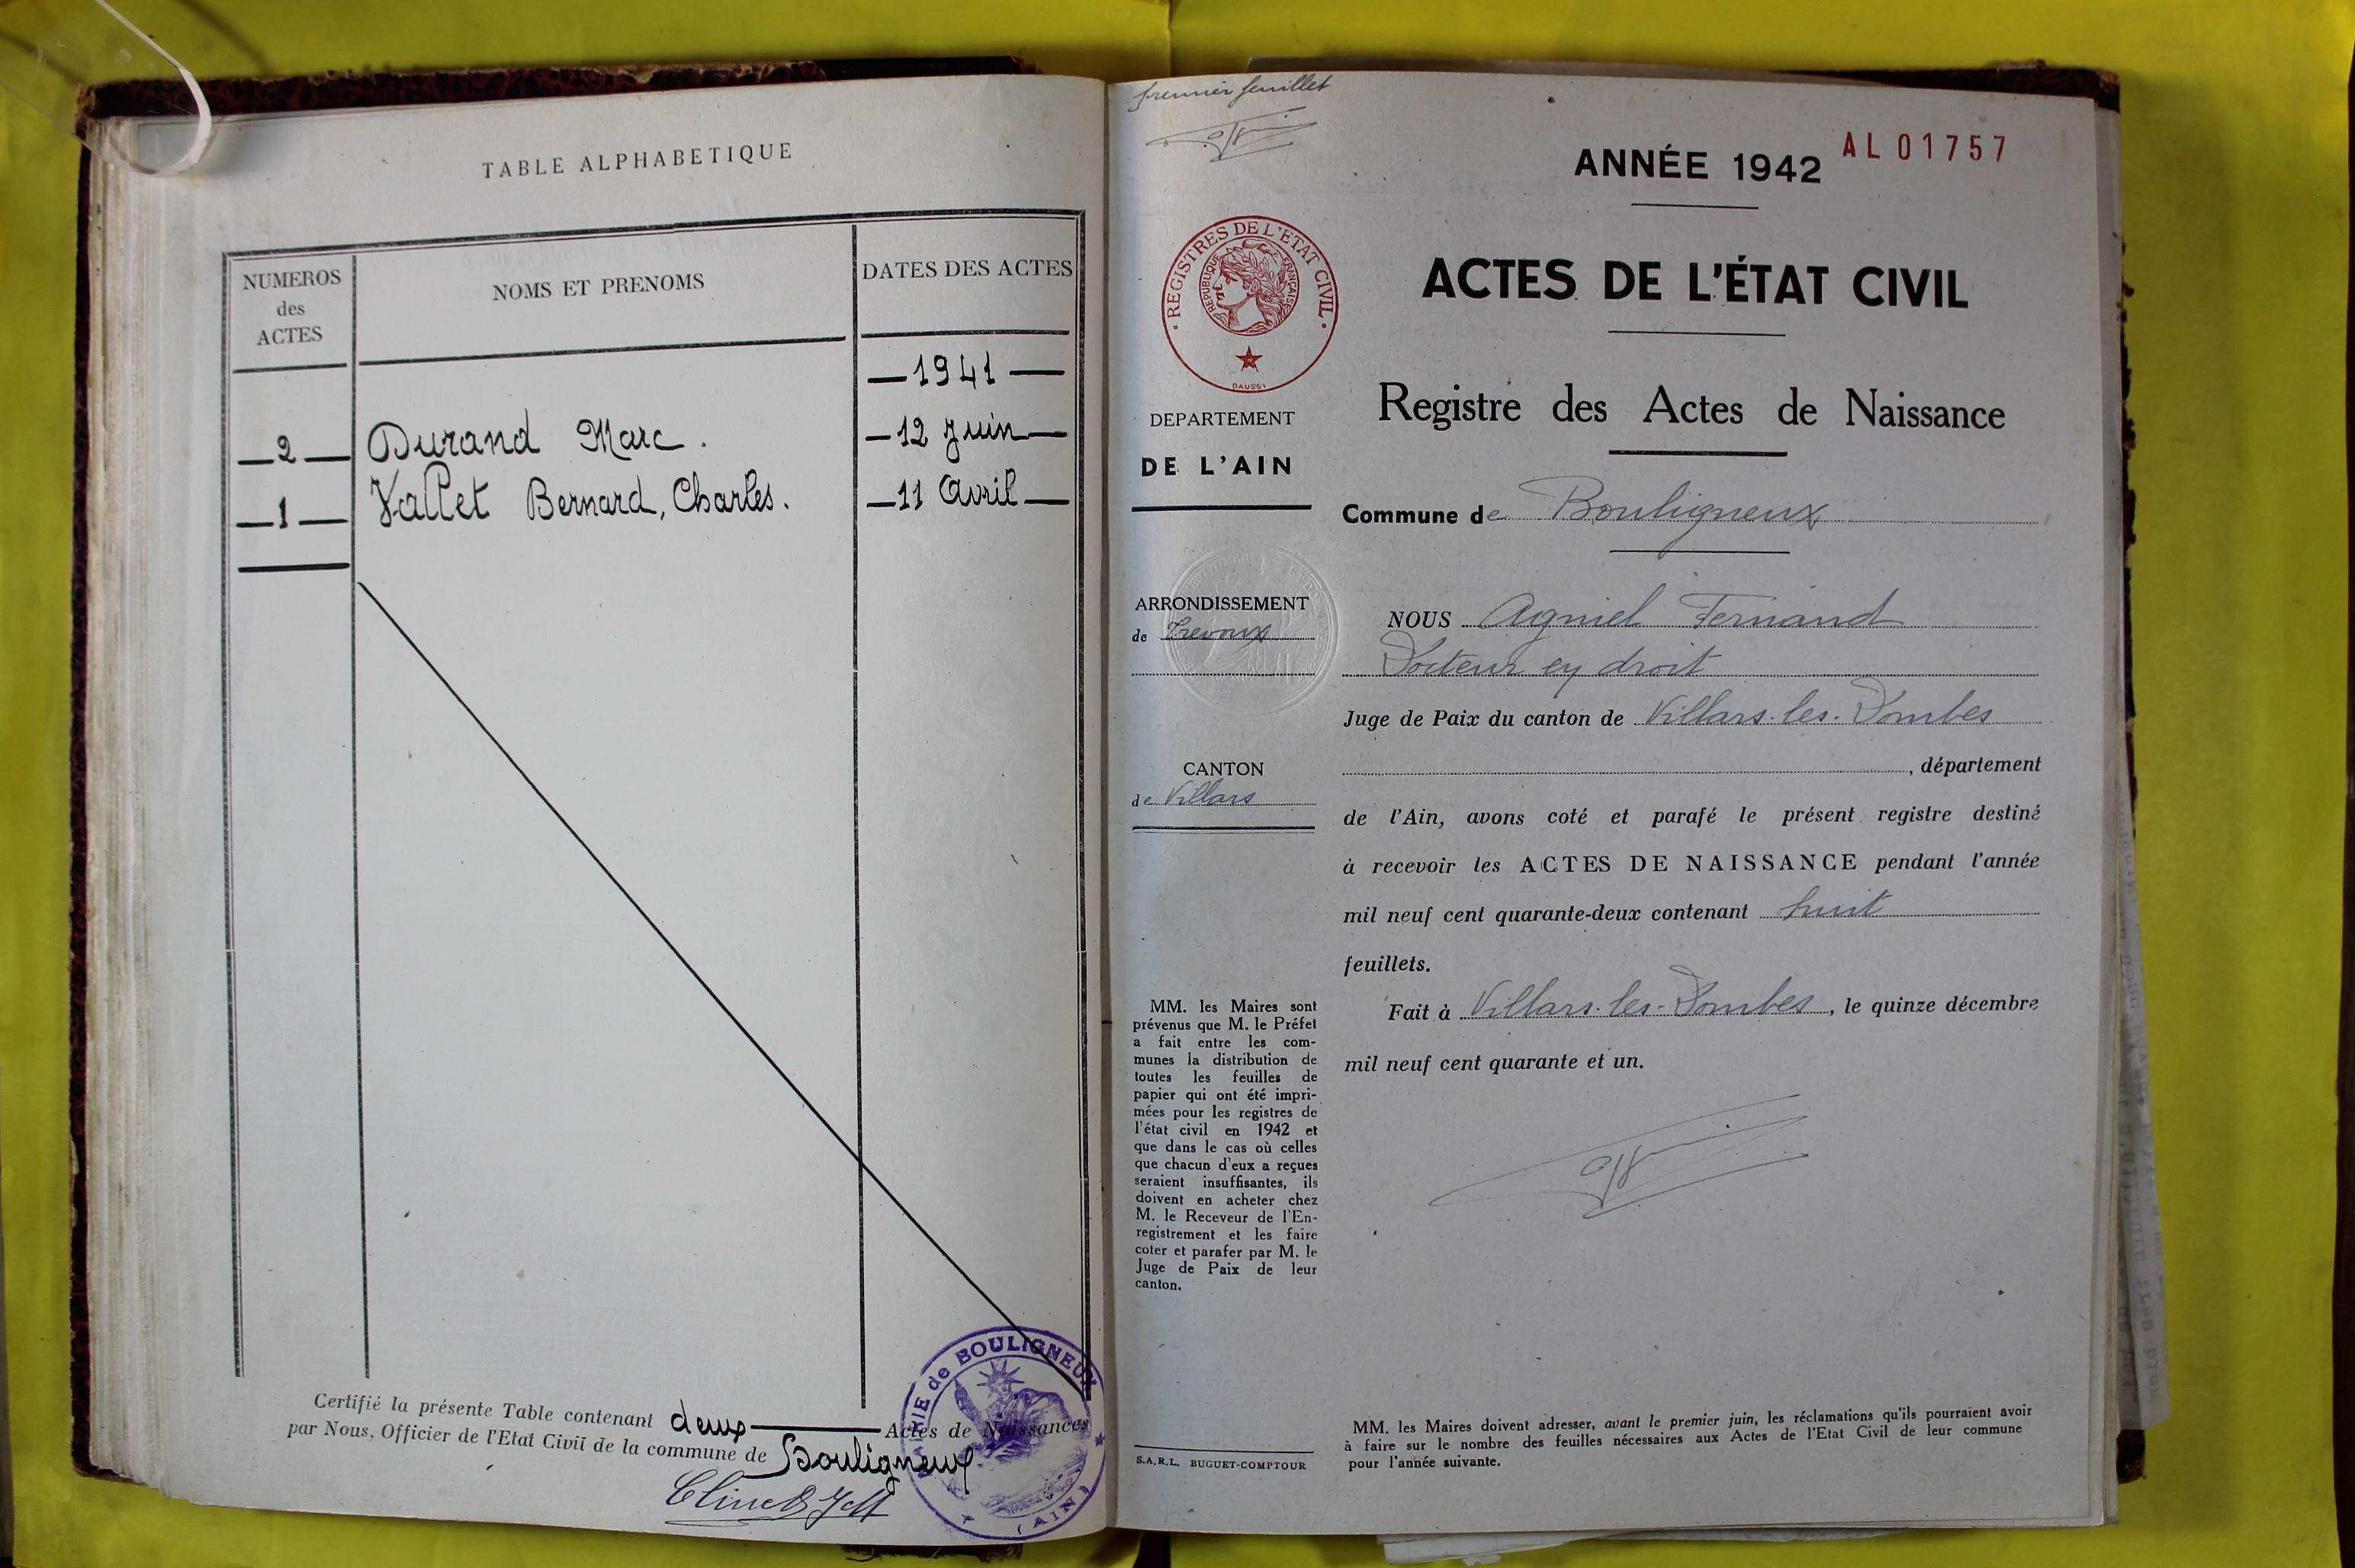 TABLE ALPHABETIQUE
NUMEROS
des
ACTES
NOMS ET PRENOMS
DATES DES ACTES
— 1941 —
— 2 — Durand Marc. — 12 Juin —
— 1 — Vallet Bernard, Charles. — 11 Avril —
Certifié la présente Table contenant deux — Actes de Naissances
par Nous, Officier de l'Etat Civil de la commune de Bouligneux
MAIRIE de BOULIGNEUX
(AIN)
premier feuillet
ANNÉE 1942
AL 01757
REGISTRES DE L'ETAT CIVIL
REPUBLIQUE FRANÇAISE
ACTES DE L'ÉTAT CIVIL
Registre des Actes de Naissance
DEPARTEMENT
DE L'AIN
Commune de Bouligneux
ARRONDISSEMENT
de Trevoux
NOUS Agniel Fernand
Docteur en droit
Juge de Paix du canton de Villars-les-Dombes
, département
CANTON
de Villars
de l'Ain, avons coté et parafé le présent registre destiné
à recevoir les ACTES DE NAISSANCE pendant l'année
mil neuf cent quarante-deux contenant huit
feuillets.
Fait à Villars-les-Dombes, le quinze décembre
mil neuf cent quarante et un.
MM. les Maires sont
prévenus que M. le Préfet
a fait entre les com-
munes la distribution de
toutes les feuilles de
papier qui ont été impri-
mées pour les registres de
l'état civil en 1942 et
que dans le cas où celles
que chacun d'eux a reçues
seraient insuffisantes, ils
doivent en acheter chez
M. le Receveur de l'En-
registrement et les faire
coter et parafer par M. le
Juge de Paix de leur
canton.
S.A.R.L. BUGUET-COMPTOUR
MM. les Maires doivent adresser, avant le premier juin, les réclamations qu'ils pourraient avoir
à faire sur le nombre des feuilles nécessaires aux Actes de l'Etat Civil de leur commune
pour l'année suivante.